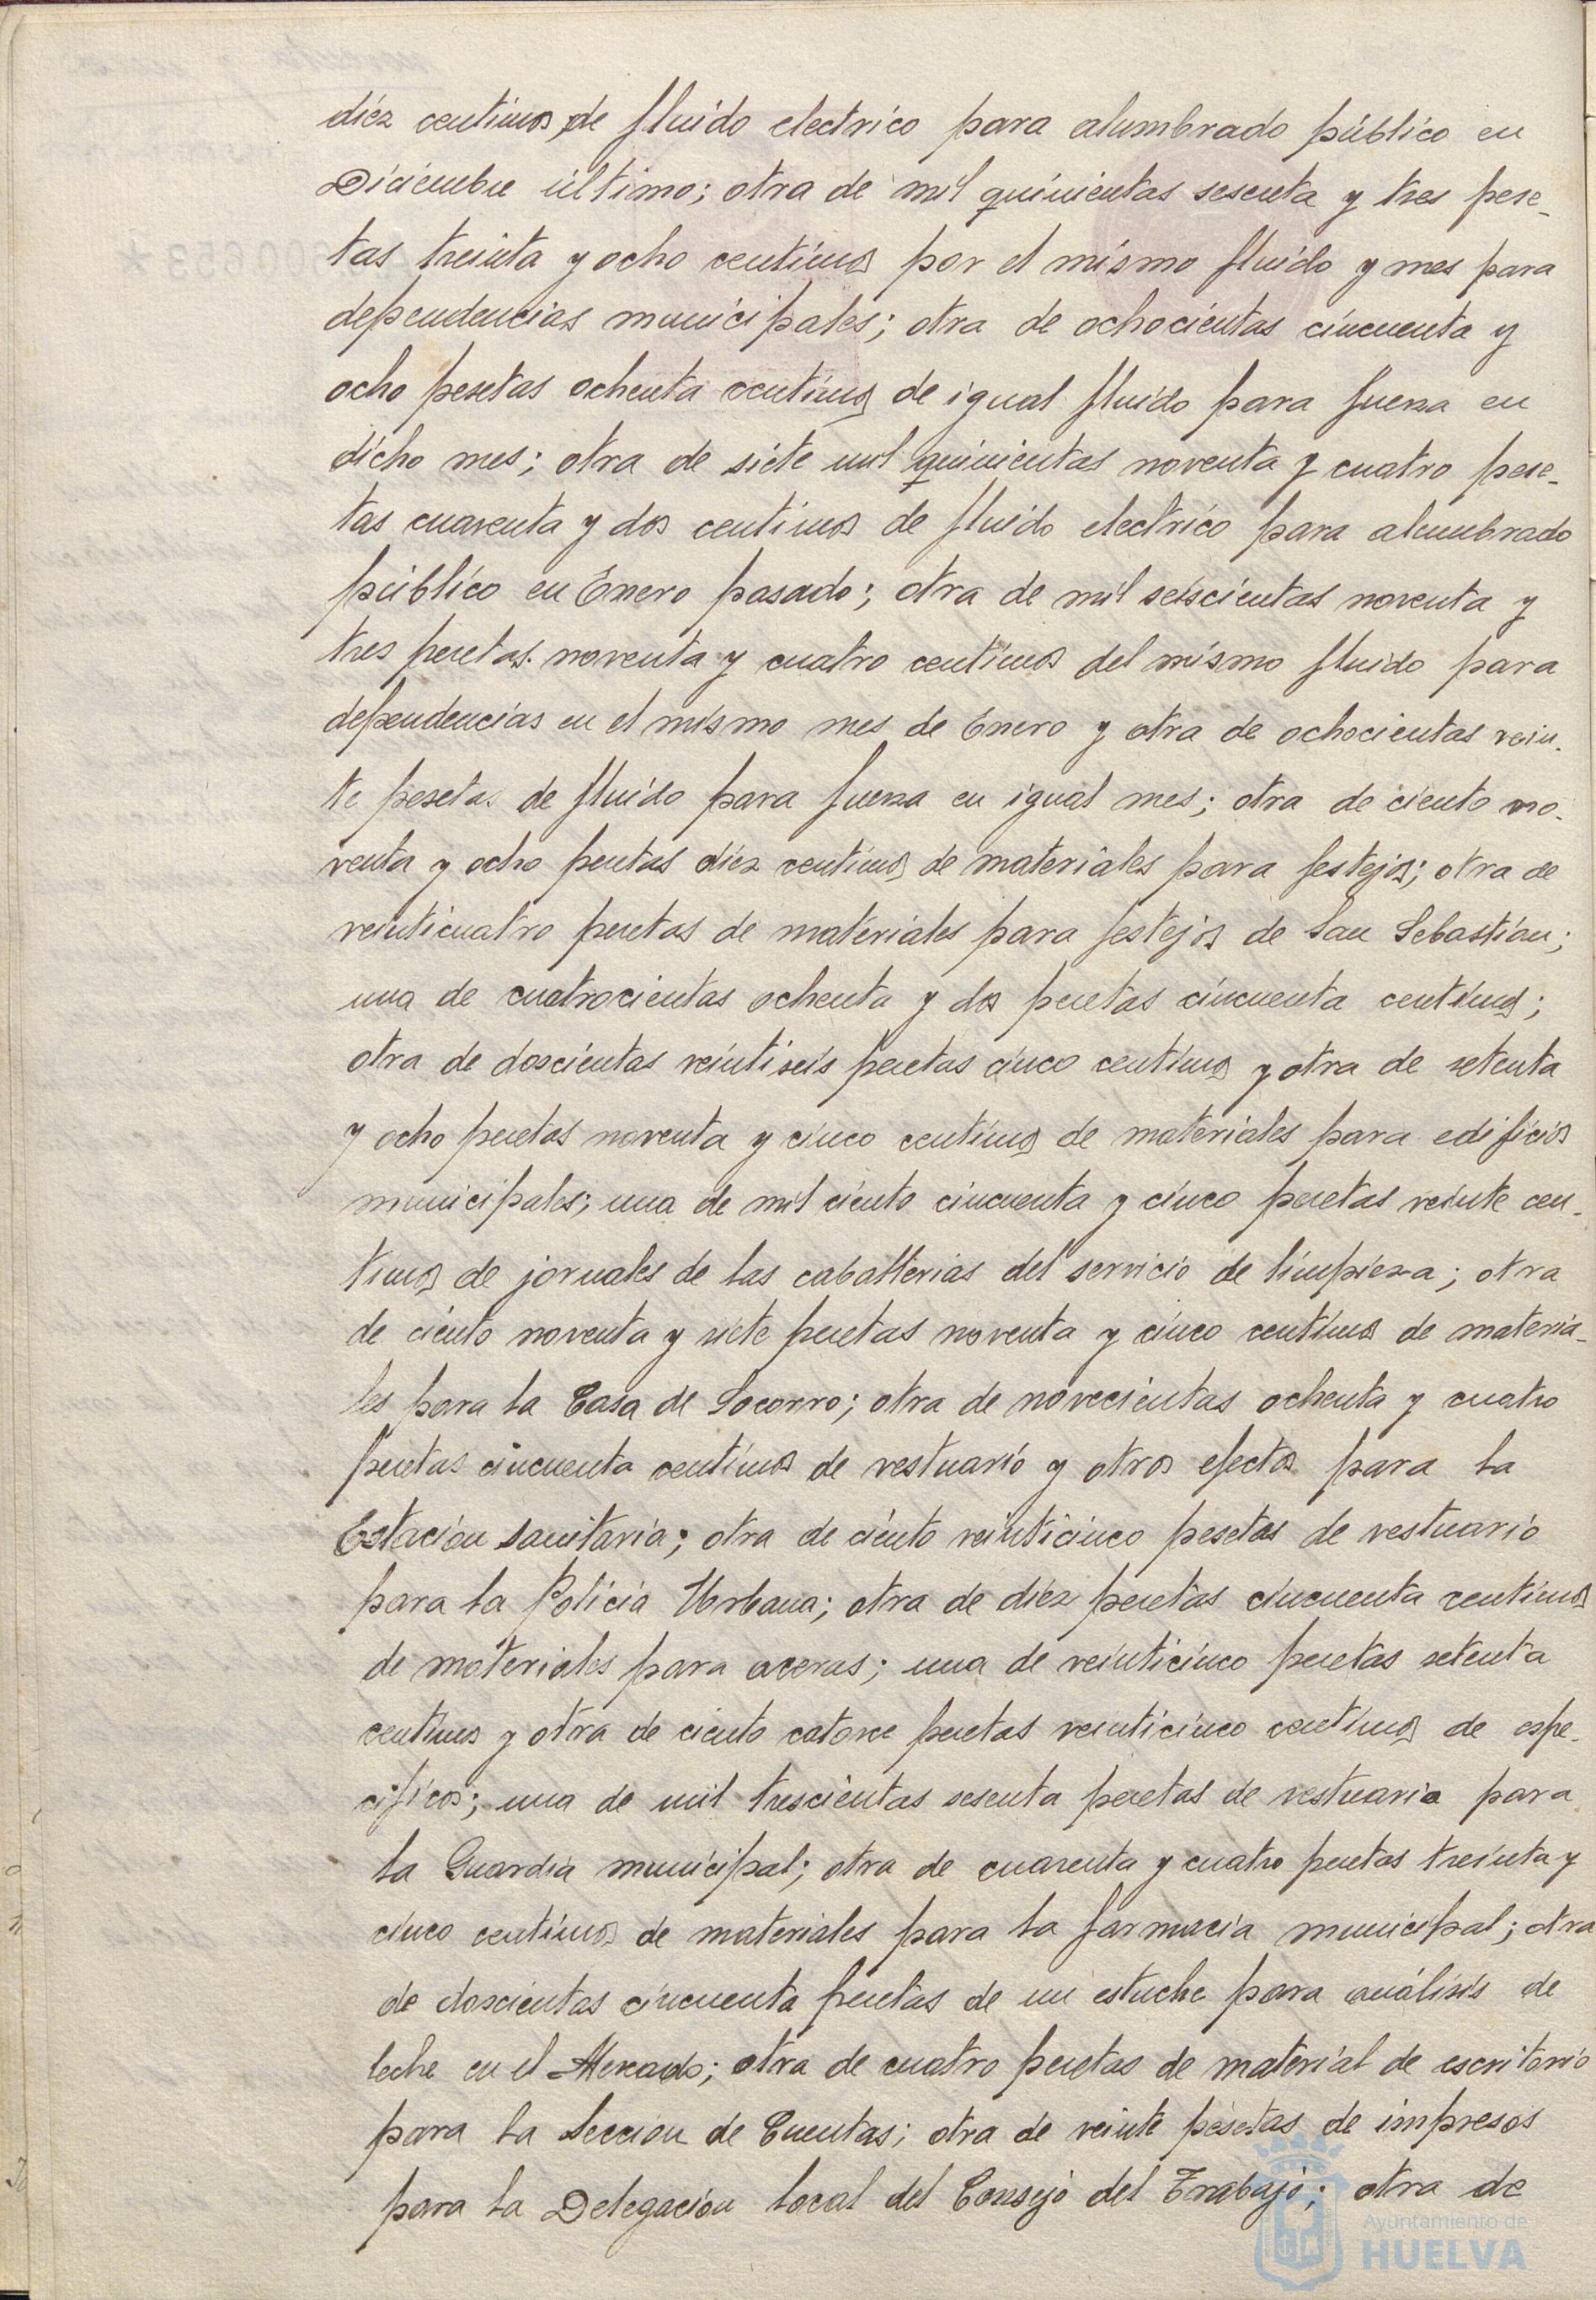 diez centimos, de fluido electrico para alumbrado público en
Diciembre último; otra de mil quinientas sesenta y tres pese-
tas treinta y ocho centimos por el mismo fluido y mes para
dependencias municipales; otra de ochocientas cincuenta y
ocho pesetas ochenta centimos de igual fluido para fuerza en
dicho mes; otra de siete mil quinientas noventa y cuatro pese-
tas cuarenta y dos centimos de fluido electrico para alumbrado
público en Enero pasado; otra de mil seiscientas noventa y
tres pesetas noventa y cuatro centimos del mismo fluido para
dependencias en el mismo mes de Enero y otra de ochocientas vein-
te pesetas de fluido para fuerza en igual mes; otra de ciento no-
venta y ocho pesetas diez centimos de materiales para festejos; otra de
veinticuatro pesetas de materiales para festejos de San Sebastián;
una de cuatrocientas ochenta y dos pesetas cincuenta centimos;
otra de doscientas veintiseis pesetas cinco centimos y otra de setenta
y ocho pesetas noventa y cinco centimos de materiales para edificios
municipales; una de mil ciento cincuenta y cinco pesetas veinte cen-
timos de jornales de las caballerias del servicio de limpieza; otra
de ciento noventa y siete pesetas noventa y cinco centimos de materia-
les para la Casa de Socorro; otra de novecientas ochenta y cuatro
pesetas cincuenta centimos de vestuario y otros efectos para la
Estación sanitaria; otra de ciento veinticinco pesetas de vestuario
para la Policia Urbana; otra de diez pesetas cincuenta centimos
de materiales para aceras; una de veinticinco pesetas setenta
centimos y otra de ciento catorce pesetas veinticinco centimos de espe-
cificos; una de mil trescientas sesenta pesetas de vestuario para
la Guardia municipal; otra de cuarenta y cuatro pesetas treinta y
cinco centimos de materiales para la farmacia municipal; otra
de doscientas cincuenta pesetas de un estuche para análisis de
leche en el Mercado; otra de cuatro pesetas de material de escritorio
para la Seccion de Cuentas; otra de veinte pesetas de impresos
para la Delegación local del Consejo del Trabajo; otra de
Ayuntamiento de
HUELVA